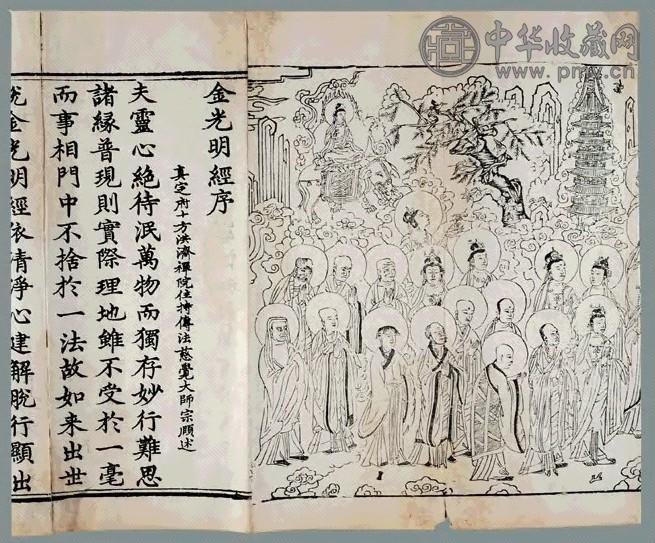 中华收藏网
www.pmw.cn
金光明經序
真定府十方洪濟禪院住持傳法慈覺大師宗賾述
夫靈心絶待泯萬物而獨存妙行難思
諸緣普現則實際理地雖不受於一毫
而事相門中不捨於一法故如来出世
說金光明經依清淨心建解脫行顯出